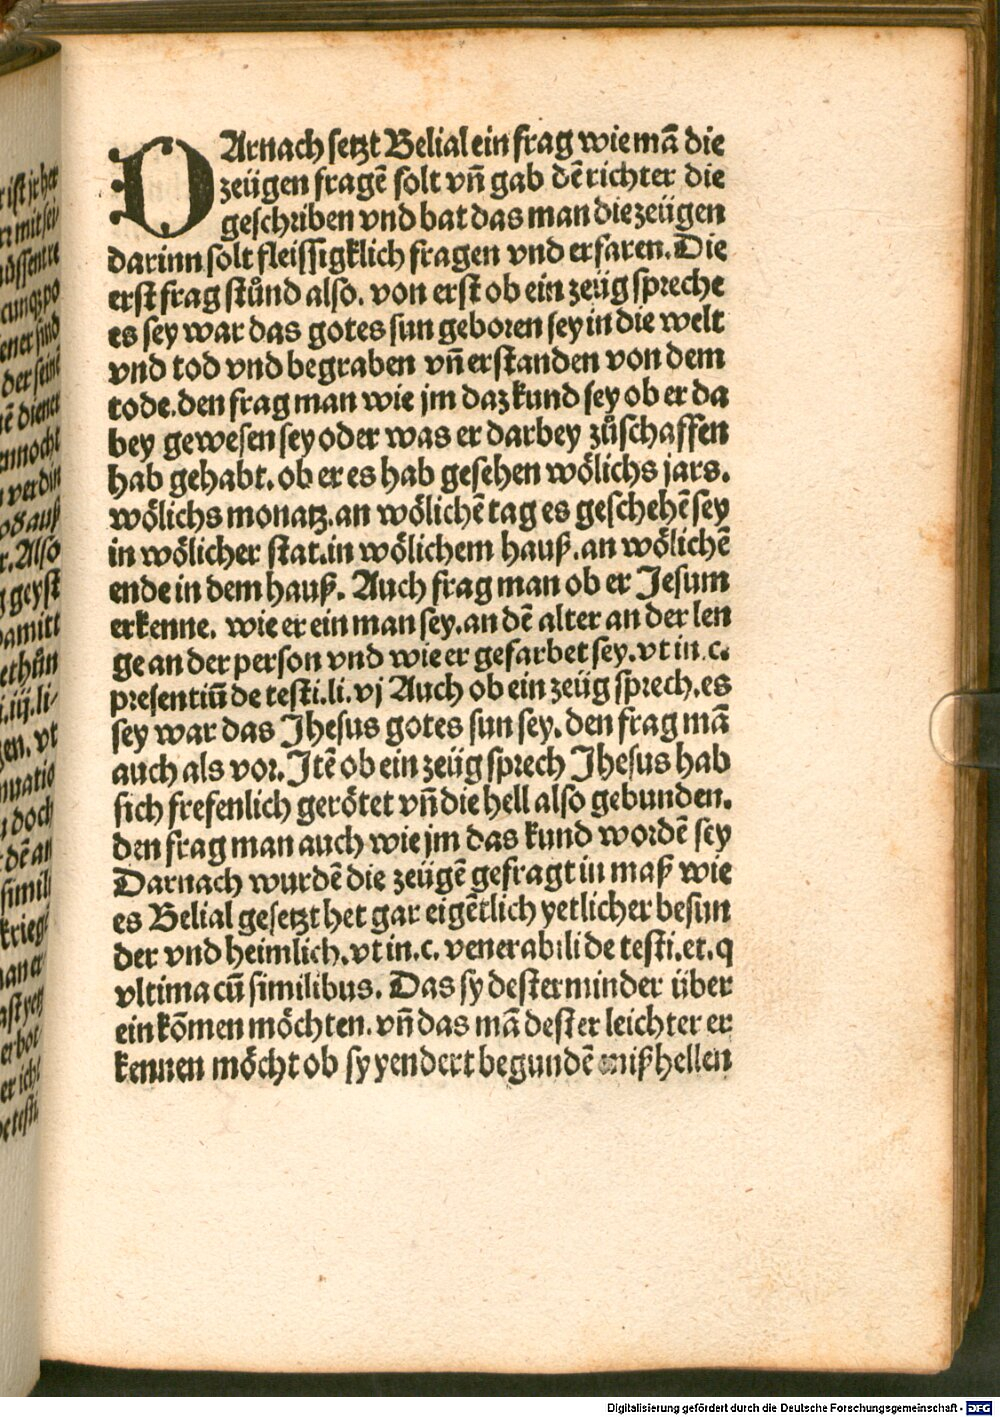 DArnach setzt Belial ein frag wie mā die
zeügen fragē solt vn̄ gab dē richter die
geschriben vnd bat das man die zeügen
darinn solt fleissigklich fragen vnd erfaren. Die
erst frag stůnd also. von erst ob ein zeüg spreche
es sey war das gotes sun geboren sey in die welt
vnd tod vnd begraben vn̄ erstanden von dem
tode. den frag man wie jm daz kund sey ob er da
bey gewesen sey oder was er darbey zůschaffen
hab gehabt. ob er es hab gesehen wölichs jars.
wölichs monatz. an wölichē tag es geschehē sey
in wölicher stat. in wölichem hauß. an wölichē
ende in dem hauß. Auch frag man ob er Jesum
erkenne. wie er ein man sey. an dē alter an der len
ge an der person vnd wie er gefarbet sey. vt in .c.
presentiū de testi. li. vj Auch ob ein zeüg sprech. es
sey war das Jhesus gotes sun sey. den frag mā
auch als vor. Jtē ob ein zeüg sprech Jhesus hab
sich frefenlich gerötet vn̄ die hell also gebunden.
den frag man auch wie jm das kund wordē sey
Darnach wurdē die zeügē gefragt in maß wie
es Belial gesetzt het gar eigētlich yetlicher besun
der vnd heimlich. vt in .c. venerabili de testi. et .q
vltima cū similibus. Das sy dester minder über
ein kōmen möchten. vn̄ das mā dester leichter er
kennen möcht ob sy yendert begundē mißhellen
Digitalisierung gefördert durch die Deutsche Forschungsgemeinschaft - DFG